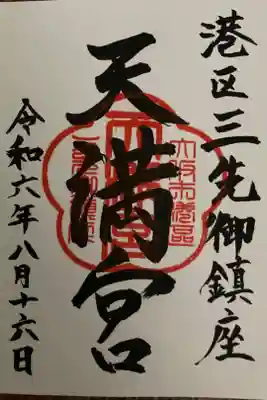 港区三先御鎮座
天満宮
令和六年八月十六日